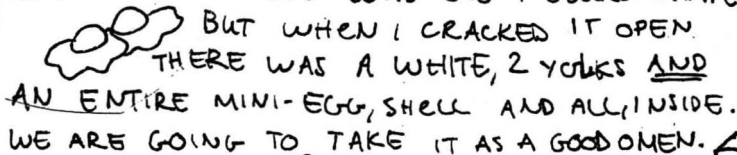 BUT WHEN I CRACKED IT OPEN
THERE WAS A WHITE, 2 YOLKS AND
AN ENTIRE MINI-EGG, SHELL AND ALL, INSIDE.
WE ARE GOING TO TAKE IT AS A GOOD OMEN.